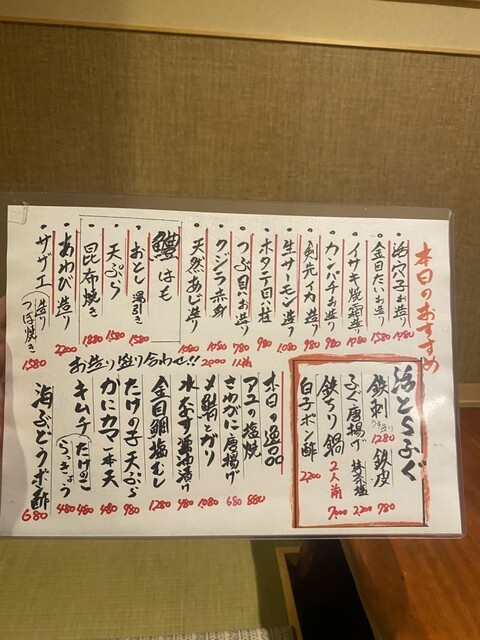 本日のおすすめ
活穴子お造り 1780
金目だいお造り 1580
イサキ焼霜造り 1080
カンパチお造り 980
剣先イカ造り 980
生サーモン造り 1080
ホタテ貝柱 980
つぶ貝のお造り 780
クジラ赤身 1080
天然あじ造り 1080
鱧 はも
おとし 湯引き 1580
天ぷら 1580
昆布焼き 1880
あわび造り 2200
サザエ 造り つぼ焼き 1580
お造り盛り合わせ!! 2000 1人前
活とらふぐ
鉄刺 1280 鉄皮 780
ふぐ唐揚げ 抹茶塩 2,200
鉄ちり鍋 2人前 7,000
白子ポン酢 2,200
本日の逸品
アユの塩焼 880
さわがに唐揚げ 680
〆鯖とガリ 1080
水なす 480
金目鯛塩むし 1280
たけの子天ぷら 980
かにカマ一本天 480
キムチ たけのこ らっきょう 480 480
海ぶどうポン酢 680